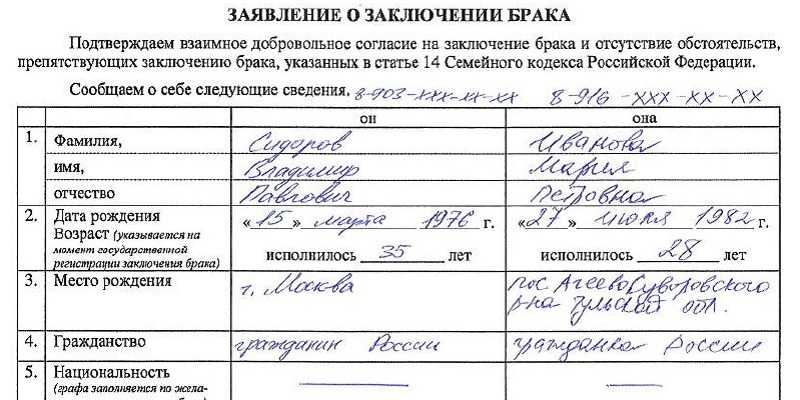 ЗАЯВЛЕНИЕ О ЗАКЛЮЧЕНИИ БРАКА
Подтверждаем взаимное добровольное согласие на заключение брака и отсутствие обстоятельств,
препятствующих заключению брака, указанных в статье 14 Семейного кодекса Российской Федерации.
Сообщаем о себе следующие сведения. 8-903-xxx-xx-xx 8-916-xxx-xx-xx
он она
1. Фамилия, Сидоров Иванова
имя, Владимир Мария
отчество Павлович Петровна
2. Дата рождения «15» марта 1976 г. «27» июля 1982 г.
Возраст (указывается на
момент государственной исполнилось 35 лет исполнилось 28 лет
регистрации заключения брака)
3. Место рождения г. Москва пос Агеево Суворовского
р-на Тульской обл.
4. Гражданство гражданин России гражданка России
5. Национальность
(графа заполняется по жела-